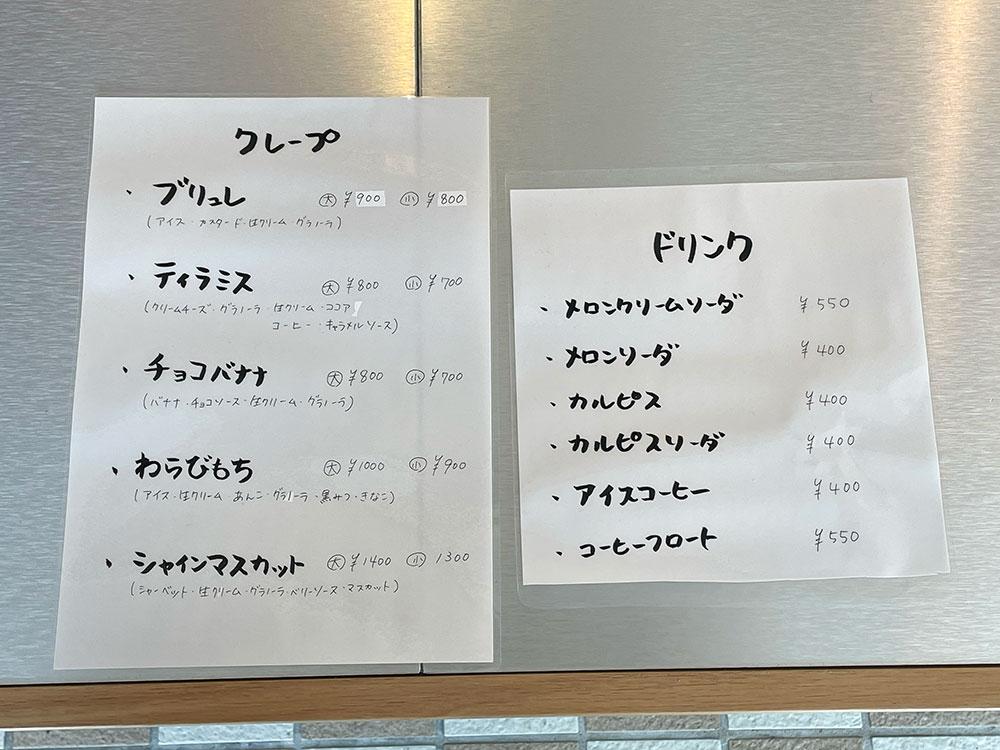 クレープ
・ブリュレ 大 ¥900 小 ¥800
(アイス・カスタード・生クリーム・グラノーラ)
・ティラミス 大 ¥800 小 ¥700
(クリームチーズ・グラノーラ・生クリーム・ココア
コーヒー・キャラメルソース)
・チョコバナナ 大 ¥800 小 ¥700
(バナナ・チョコソース・生クリーム・グラノーラ)
・わらびもち 大 ¥1000 小 ¥900
(アイス・生クリーム あんこ・グラノーラ・黒みつ・きなこ)
・シャインマスカット 大 ¥1400 小 1300
(シャーベット・生クリーム・グラノーラ・ベリーソース・マスカット)
ドリンク
・メロンクリームソーダ ¥550
・メロンソーダ ¥400
・カルピス ¥400
・カルピスソーダ ¥400
・アイスコーヒー ¥400
・コーヒーフロート ¥550